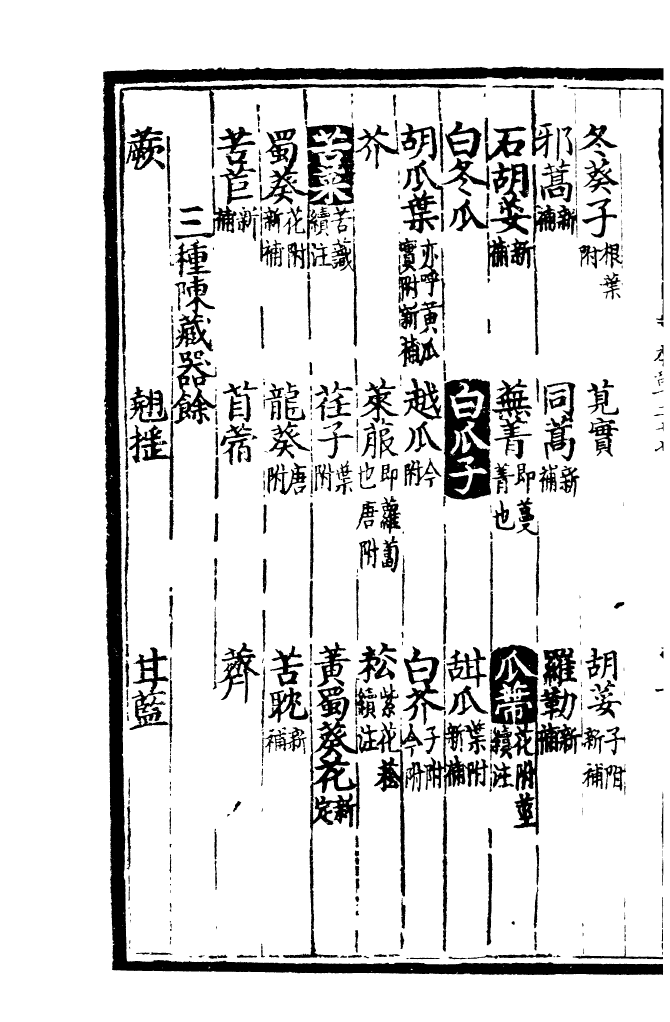 冬葵子根葉附 莧實 胡荽子附新補
邪蒿新補 同蒿新補 羅勒新補
石胡荽新補 蕪菁即蔓菁也 瓜蔕花附莖續注
白冬瓜 白瓜子 甜瓜葉附新補
胡瓜葉亦呼黃瓜實附新補 越瓜今附 白芥子附今附
芥 萊菔即蘿蔔也唐附 菘紫花菘續注
苦菜苦蘵續注 荏子葉附 黃蜀葵花新定
蜀葵花附新補 龍葵唐附 苦耽新補
苦苣新補 苜蓿 薺
三種陳藏器餘
蕨 翹搖 甘藍